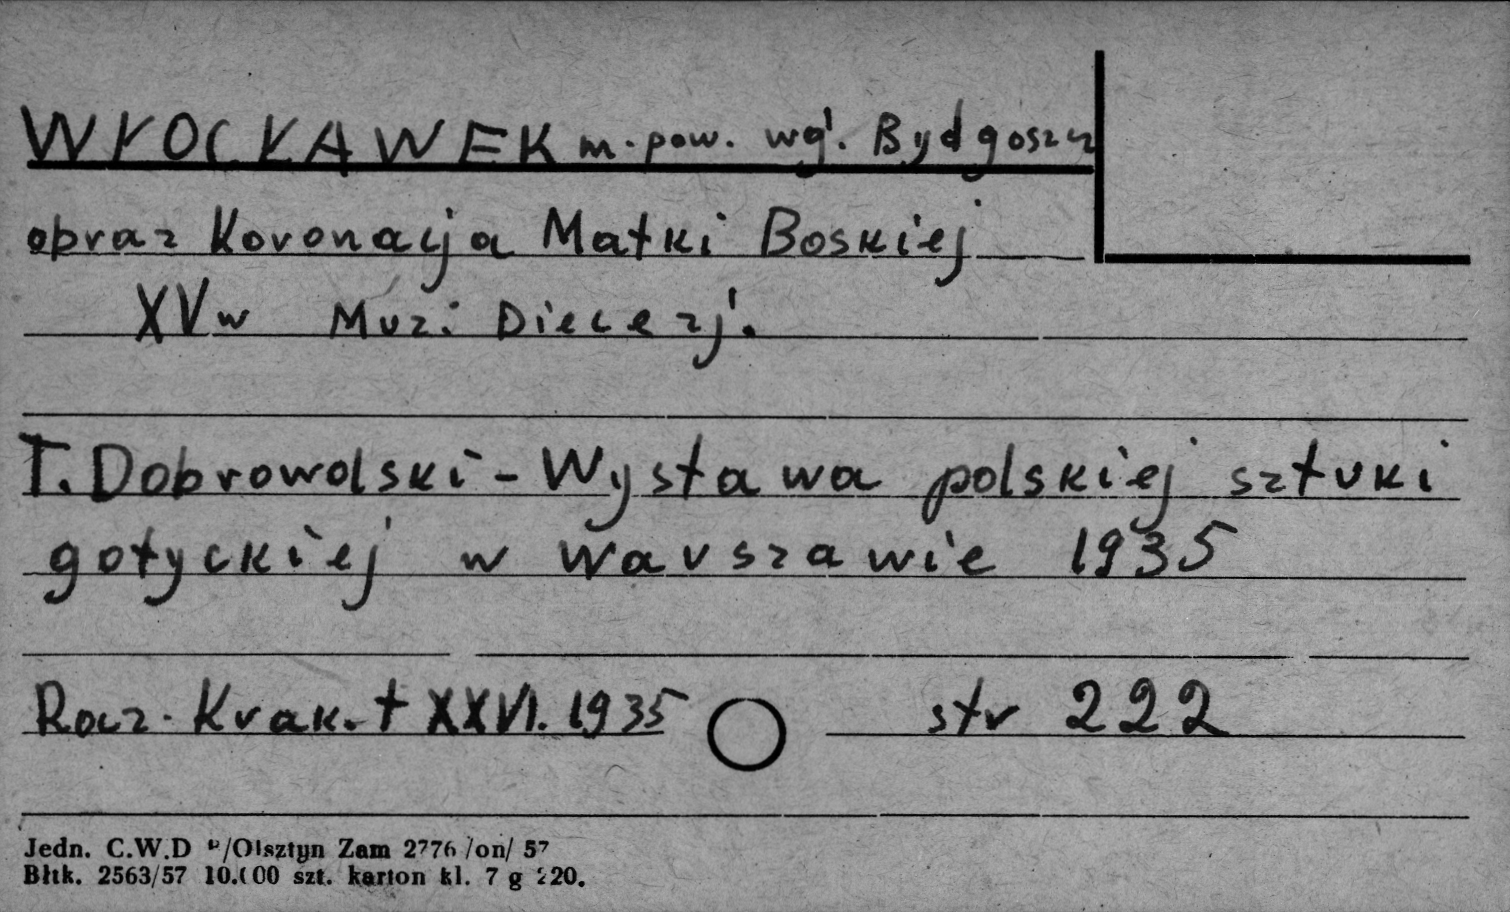 WŁOCŁAWEK m. pow. wg. Bydgoszcz
obraz Koronacja Matki Boskiej
XV w Muz. Diecezj.
T. Dobrowolski - Wystawa polskiej sztuki
gotyckiej w Warszawie 1935
Rocz. Krak. t XXVI. 1935 str 222
Jedn. C.W.D /Olsztyn Zam 2776 /on/ 57
Błtk. 2563/57 10.000 szt. karton kl. 7 g 220.